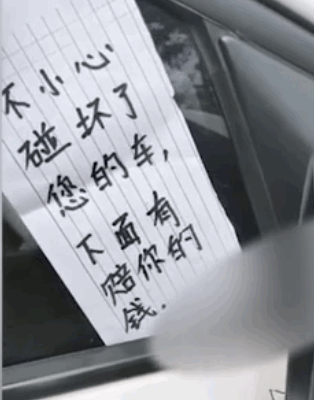 不小心
碰坏了
您的车,
下面有
赔你的
钱.